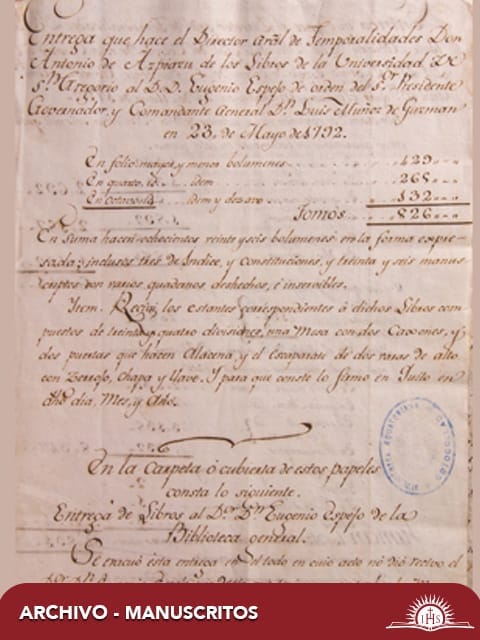 Entrega que hace el Director Gral de Temporalidades Don
Antonio de Azpiazu de los Libros de la Universidad de
Sn. Gregorio al D.D. Eugenio Espejo de orden del Sr. Presidente
Governador, y Comandante General Dn. Luis Muñoz de Guzman
en 23, de Mayo de 1792.
En folio mayor, y menor bolumenes 429
En quarto, id. idem 265
En octavo id. idem y dezavo 132
Tomos 826
En suma hacen ochocientos veinte y seis bolumenes en la forma expre-
sada; inclusos tres de Indice, y constituciones, y treinta y seis manus
criptos con varios quadanos deshechos, é inservibles.
Item. Recivi los estantes correspondientes á dichos Libros com
puestos de treinta y quatro divisiones, una Mesa con dos Caxones, y
dos puertas que hacen Alacena, y el escaparate de dos varas de alto
con Zerrojo, Chapa y Yave. Y para que conste lo firmo en Quito en
dho dia, Mes, y Año.
En la Carpeta ó cubierta de estos papeles
consta lo siguiente.
Entrega de Libros al Dor. Dn. Eugenio Espejo de la
Biblioteca general.
Se evacuó esta entrega en el todo en cuio acto no dió recivo el
ARCHIVO - MANUSCRITOS
IHS